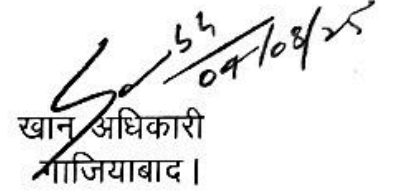 04/08/25
खान अधिकारी
गाजियाबाद।